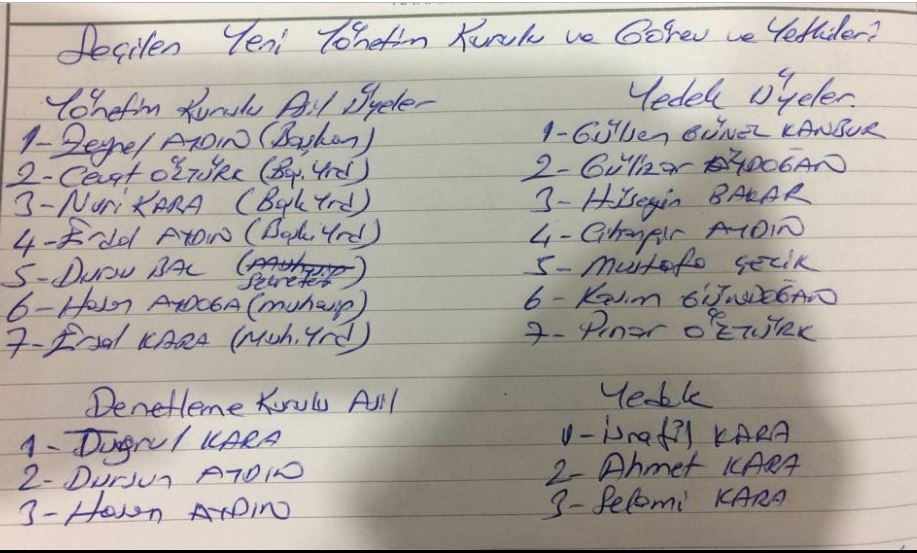 Seçilen Yeni Yönetim Kurulu ve Görev ve Yetkileri
Yönetim Kurulu Asil Üyeler
1- Zeynel AYDIN (Başkan)
2- Cevat ÖZTÜRK (Bşk. Yrd)
3- Nuri KARA (Bşk Yrd)
4- Erdal AYDIN (Başk. Yrd)
5- Dursu BAL (Muhasip Sekreter)
6- Hasan AYDOĞA (muhasip)
7- Ersal KARA (Muh. Yrd)
Yedek Üyeler.
1- Gülsen GÜNEL KANBUR
2- Gülizar AYDOĞAN
3- Hüseyin BAKAR
4- Cihangir AYDIN
5- Mustafa ÇELİK
6- Kasım GÜNDOĞAN
7- Pınar ÖZTÜRK
Denetleme Kurulu Asil
1- Duğrul KARA
2- Dursun AYDIN
3- Hasan AYDIN
Yedek
1- İsrafil KARA
2- Ahmet KARA
3- Selami KARA